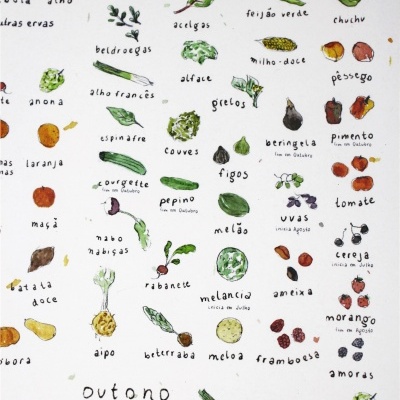 alho
outras ervas
acelgas
feijão verde
chuchu
beldroegas
alface
milho-doce
pêssego
anona
alho francês
grelos
espinafre
couves
beringela
fim em Outubro
pimento
fim em Outubro
laranja
figos
courgette
fim em Outubro
pepino
fim em Outubro
uvas
início Agosto
tomate
maçã
nabo
nabiças
melão
cereja
início em Julho
batata
doce
rabanete
melancia
início em Julho
ameixa
morango
aipo
beterraba
meloa
framboesa
amoras
outono